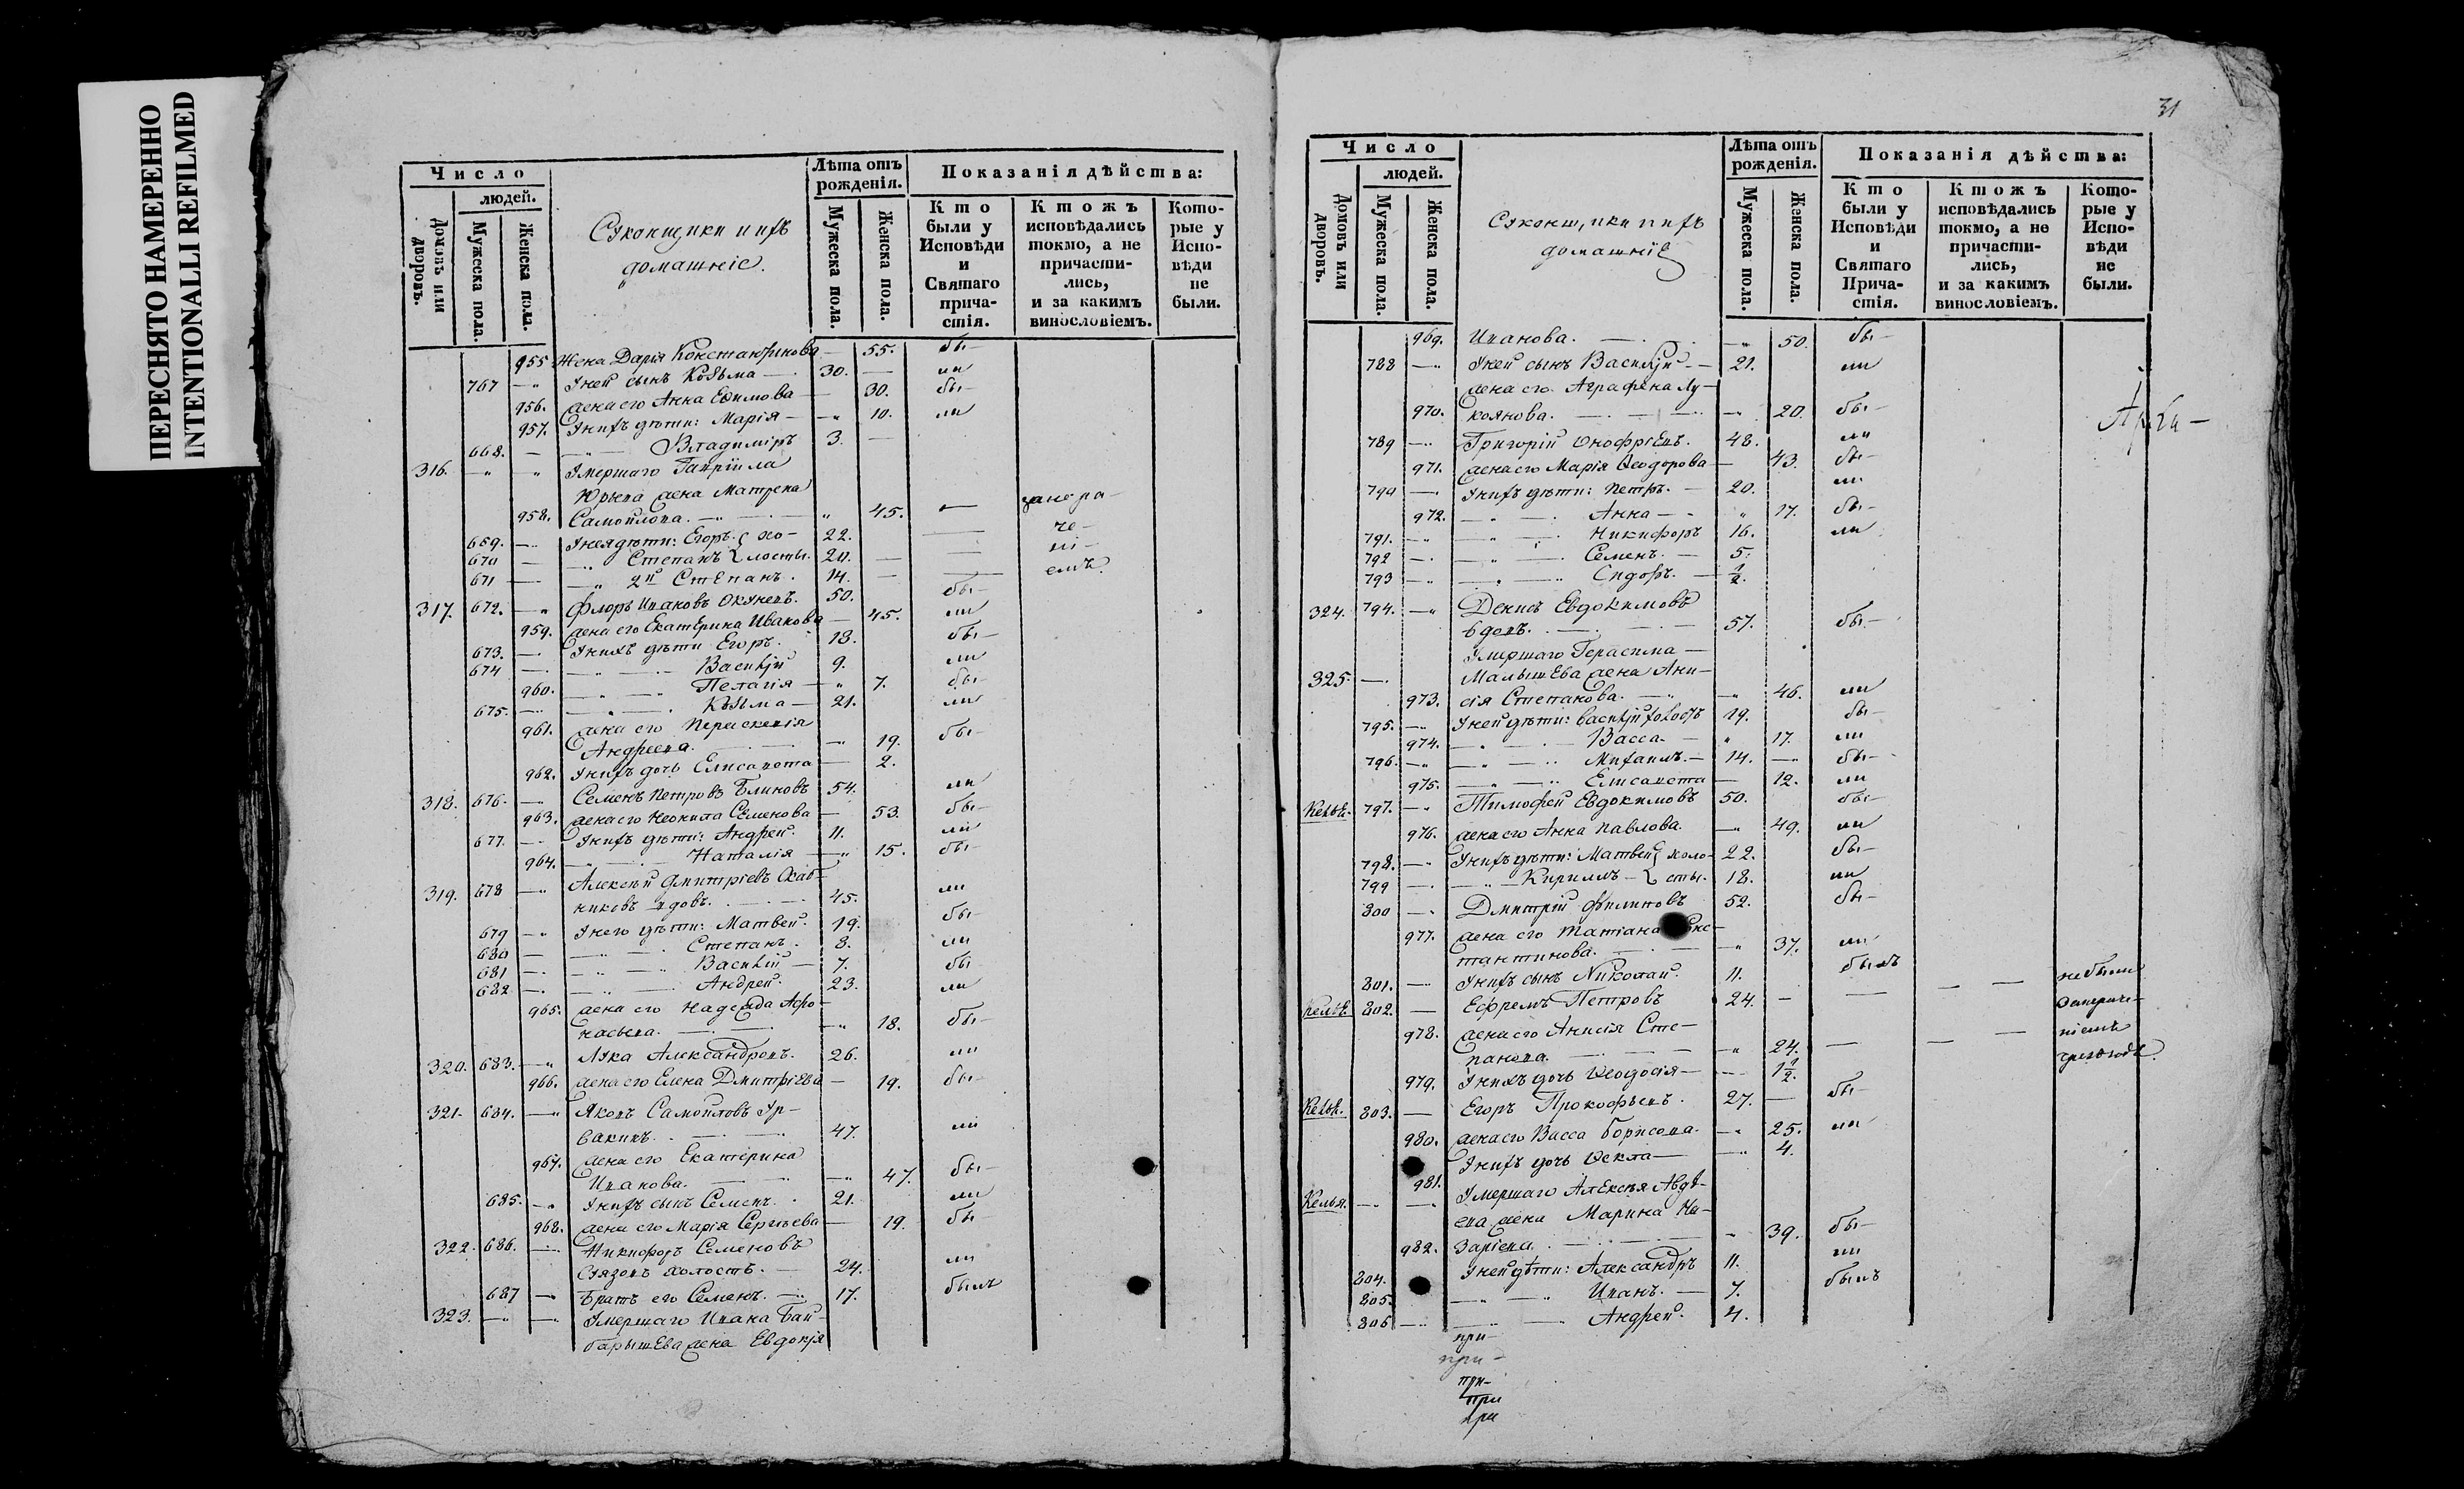 ПЕРЕСНЯТО НАМЕРЕННО
INTENTIONALLI REFILMED
Число
людей.
Домовъ или дворовъ.
Мужеска пола.
Женска пола.
домашніе.
Лѣта отъ рожденія.
Мужеска пола.
Женска пола.
Показанія дѣйства:
Кто были у Исповѣди и Святаго причастія.
Ктожъ исповѣдались токмо, а не причастились, и за какимъ винословіемъ.
Которые у Исповѣди не были.
955 Жена Дарія Константинова — 55. бы-
767 — У ней сынъ Козьма — 30. — ли
956. жена его Анна Ефимова — 30. бы-
957. У нихъ дѣти: Марія — 10. ли
668. — Владиміръ 3. —
316. Умершаго Гавріила
Юрьева жена Матрена
958. Самойлова. — 45. —
669. — У нея дѣти: Егоръ хо- 22. —
670 — Степанъ лосты. 20. —
671 — 2й Степанъ. 14. —
317. 672. — Флоръ Ивановъ 50. бы-
959. жена его Екатерина Иванова — 45. ли
673. — У нихъ дѣти Егоръ. 18. бы-
674 — Василій 9. ли
960. — Пелагія — 7. бы-
675. — Козьма — 21. ли
961. жена его Параскевія
Андреева. — 19. бы-
962. У нихъ дочь Елисавета — 2.
318. 676. — Семенъ Петровъ Блиновъ 54. ли
963. жена его Неонила Семенова — 53. бы-
677. — У нихъ дѣти: Андрей. 11. ли
964. — Наталія — 15. бы-
319. 678 — Алексѣй Дмитріевъ
никовъ вдовъ. — 45. ли
679 — У него дѣти: Матвей. 19. бы-
680 — Степанъ. 8. ли
681 — Василій — 7. бы-
682 — Андрей. 23. ли
965. жена его Надежда Афо-
насьева. — 18. бы-
320. 683. — Лука Александровъ. 26. ли
966. жена его Елена Дмитріева — 19. бы-
321. 684. — Яковъ Самойловъ
47. ли
967. жена его Екатерина
Иванова. — 47. бы-
685. — У нихъ сынъ Семенъ. 21. ли
968. жена его Марія Сергѣева — 19. бы-
322. 686. — Никифоръ Семеновъ
холостъ. — 24. ли
687 — Братъ его Семенъ. — 17. былъ
323. — Умершаго Ивана Бай-
барышева жена Евдокія
31
Число
людей.
Домовъ или дворовъ.
Мужеска пола.
Женска пола.
домашніе
Лѣта отъ рожденія.
Мужеска пола.
Женска пола.
Показанія дѣйства:
Кто были у Исповѣди и Святаго Причастія.
Ктожъ исповѣдались токмо, а не причастились, и за какимъ винословіемъ.
Которые у Исповѣди не были.
969. Иванова. — 50. бы-
788 — У ней сынъ Василій — 21. ли
жена его Аграфена Лу-
970. коянова. — 20. бы-
789 — Григорій Онофріевъ. 48. ли
971. жена его Марія Ѳеодорова — 43. бы-
790 — У нихъ дѣти: Петръ. — 20. ли
972. — Анна — 17. бы-
791. — Никифоръ 16. ли
792 — Семенъ. — 5.
793 — Сидоръ. — 1/2.
324. 794. — Денисъ Евдокимовъ
вдовъ. — 57. бы-
Умершаго Герасима —
325. — Малышева жена Ани-
973. сія Степанова. — 46. ли
795. — У ней дѣти: Василій холостъ 19. бы-
974. — Васса — 17. ли
796. — Михаилъ. — 14. — бы-
975. — Елисавета — 12. ли
797. — Тимофей Евдокимовъ 50. бы-
976. жена его Анна Павлова. — 49. ли
798. — У нихъ дѣти: Матвей холо- 22. бы-
799 — Кириллъ — сты. 18. ли
800 — Дмитрій Филиповъ 52. бы-
977. жена его Татіана
тантинова. — 37. ли
801. — У нихъ сынъ Николай. 11. былъ
802. — Ефремъ Петровъ 24. — не были
978. жена его Анисія Сте-
панова. — 24. —
979. У нихъ дочь Ѳеодосія — 1 1/2.
803. — Егоръ Прокофьевъ. 27. — бы-
980. жена его Васса Борисова. — 25. ли
У нихъ дочь Ѳекла — 4.
981.
Келья. — Умершаго Алексѣя Авдѣ-
ева жена Марина На-
982. заріева. — 39. бы-
804. У ней дѣти: Александръ 11. ли
805. — Иванъ. — 7. былъ
806 — Андрей. 4.
при-
при-
при-
при
при